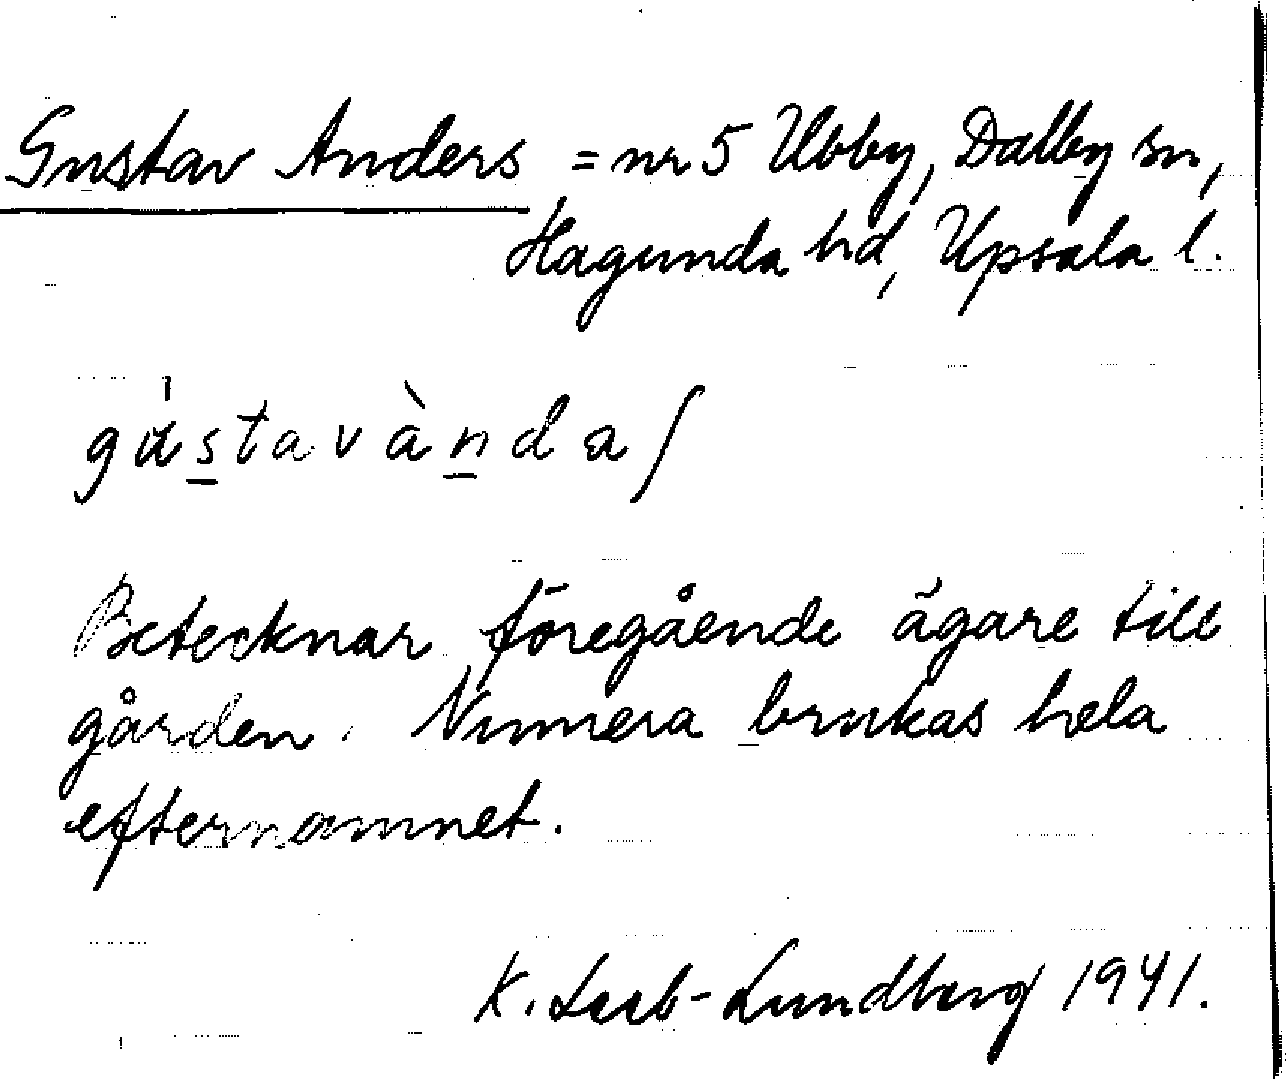 Gustav Anders = nr 5 Ubby, Dalby sn,
Hagunda hd, Upsala l.
gústavànda ʃ
Betecknar föregående ägare till
gården. Numera brukas hela
efternamnet.
K. Leeb-Lundberg 1941.